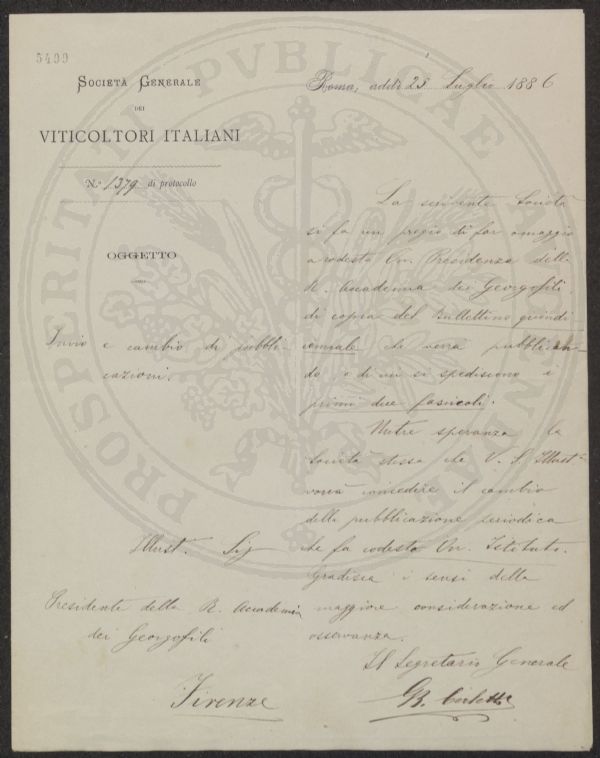 5499
SOCIETÀ GENERALE
DEI
VITICOLTORI ITALIANI
N.° 1379 di protocollo
OGGETTO
Invio e cambio di pubbli-
cazioni.
Roma, addì 25 Luglio 1886
La scrivente Società
si fa un pregio di far omaggio
a codesta On. Presidenza della
R. Accademia dei Georgofili
di copia del Bullettino quindi
cinale che verrà pubblican-
do e di cui si spediscono i
primi due fascicoli.
Nutre speranza la
Società stessa che V. S. Illust.
vorrà concedere il cambio
della pubblicazione periodica
che fa codesto On. Istituto.
Gradisca i sensi della
maggiore considerazione ed
osservanza.
Il Segretario Generale
Illust. Sig
Presidente della R. Accademia
dei Georgofili
Firenze
PROSPERITATI PVBLICAE